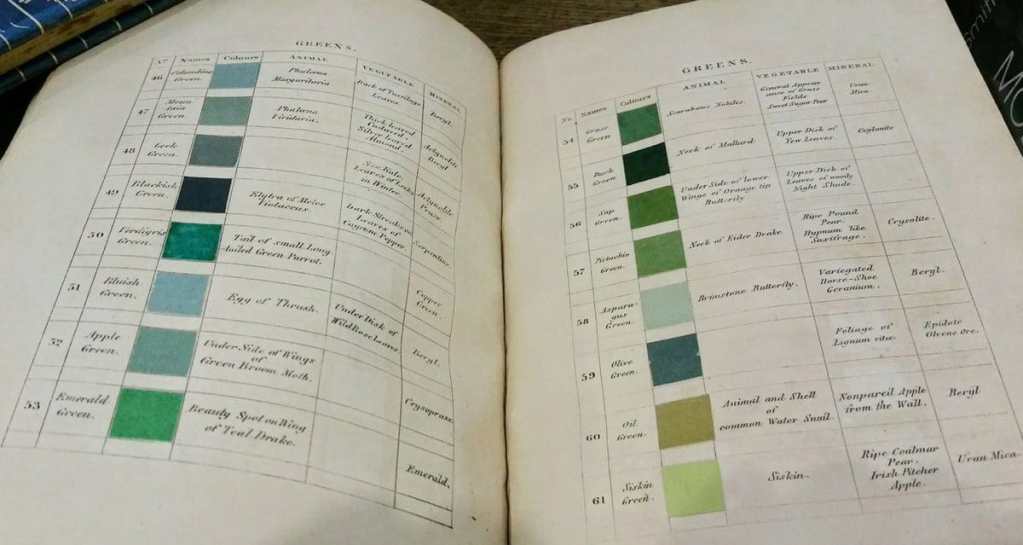 GREENS.
Nº Names Colours ANIMAL VEGETABLE MINERAL
46 Celandine Green. Phalæna Margaritaria Back of Tussilage Leaves Beryl.
47 Mountain Green Phalæna Viridaria. Thick leaved Cudweed Silver leaved Almond. Actynolite Beryl
48 Leek Green. Sea Kale Leaves of Leeks in Winter Actynolite Prase.
49 Blackish Green. Elytra of Meloe Violaceus Dark Streaks on Leaves of Cayenne Pepper Serpentine.
50 Verdigris Green. Tail of small Long tailed Green Parrot. Copper Green.
51 Bluish Green. Egg of Thrush. Under Disk of Wild Rose leaves. Beryl.
52 Apple Green. Under Side of Wings of Green Broom Moth. Crysoprase.
53 Emerald Green. Beauty Spot on Wing of Teal Drake. Emerald.
GREENS.
No. Names Colours ANIMAL VEGETABLE MINERAL
54 Grass Green Scarabæus Nobilis. General Appearance of Grass Fields Sweet Sugar Pear Uran Mica.
55 Duck Green. Neck of Mallard. Upper Disk of Yew Leaves. Ceylanite
56 Sap Green. Under Side of lower Wings of Orange tip Butterfly Upper Disk of Leaves of woody Night Shade.
57 Pistachio Green. Neck of Eider Drake. Ripe Pound Pear. Hypnum like Saxifrage. Crysolite.
58 Asparagus Green. Brimstone Butterfly. Variegated Horse-Shoe Geranium. Beryl.
59 Olive Green. Foliage of Lignum vitæ. Epidote Olvene Ore.
60 Oil Green. Animal and Shell of common Water Snail. Nonpareil Apple from the Wall. Beryl
61 Siskin Green. Siskin. Ripe Coalmar Pear. Irish Pitcher Apple. Uran Mica.